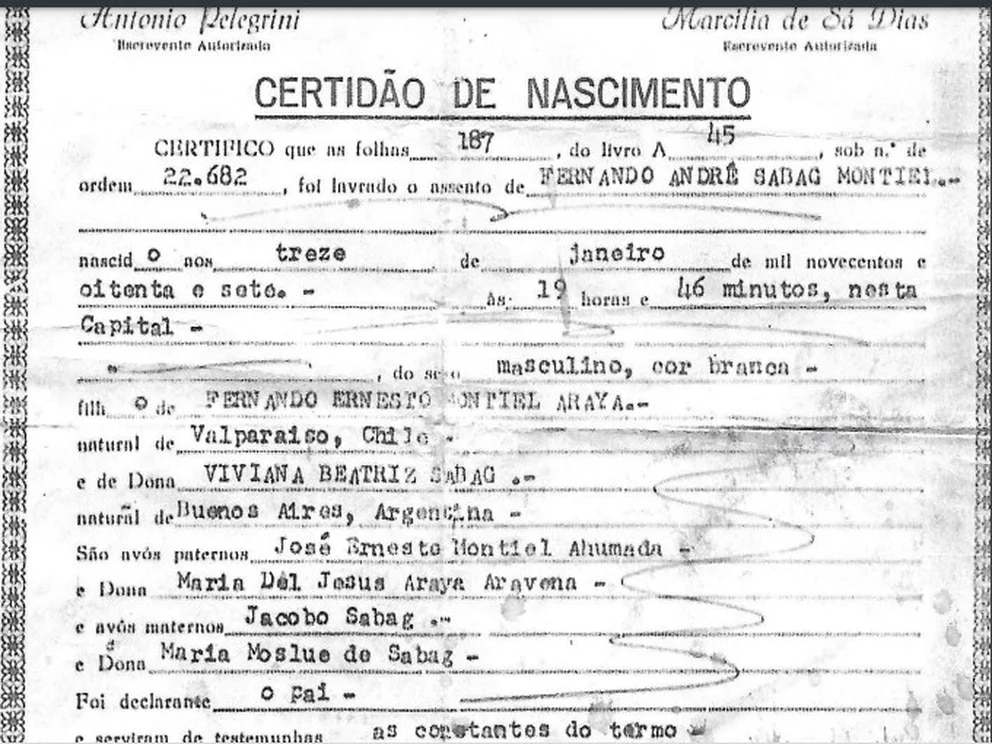 Antonio Pelegrini Marcilia de Sá Dias
Escrevente Autorizada Escrevente Autorizada
CERTIDÃO DE NASCIMENTO
CERTIFICO que as folhas 187, do livro A 45, sob n.º de
ordem 22.682, foi lavrado o assento de FERNANDO ANDRÉ SABAG MONTIEL.-
nascido o nos treze de janeiro de mil novecentos e
oitenta e sete. - às 19 horas e 46 minutos, nesta
Capital -
, do sexo masculino, cor branca -
filh o de FERNANDO ERNESTO MONTIEL ARAYA.-
natural de Valparaiso, Chile -
e de Dona VIVIANA BEATRIZ SABAG .-
natural de Buenos Aires, Argentina -
São avós paternos José Ernesto Montiel Ahumada -
e Dona Maria Del Jesus Araya Aravena -
e avós maternos Jacobo Sabag .-
e Dona Maria Moslue de Sabag -
Foi declarante o pai -
e serviram de testemunhas as constantes do termo -